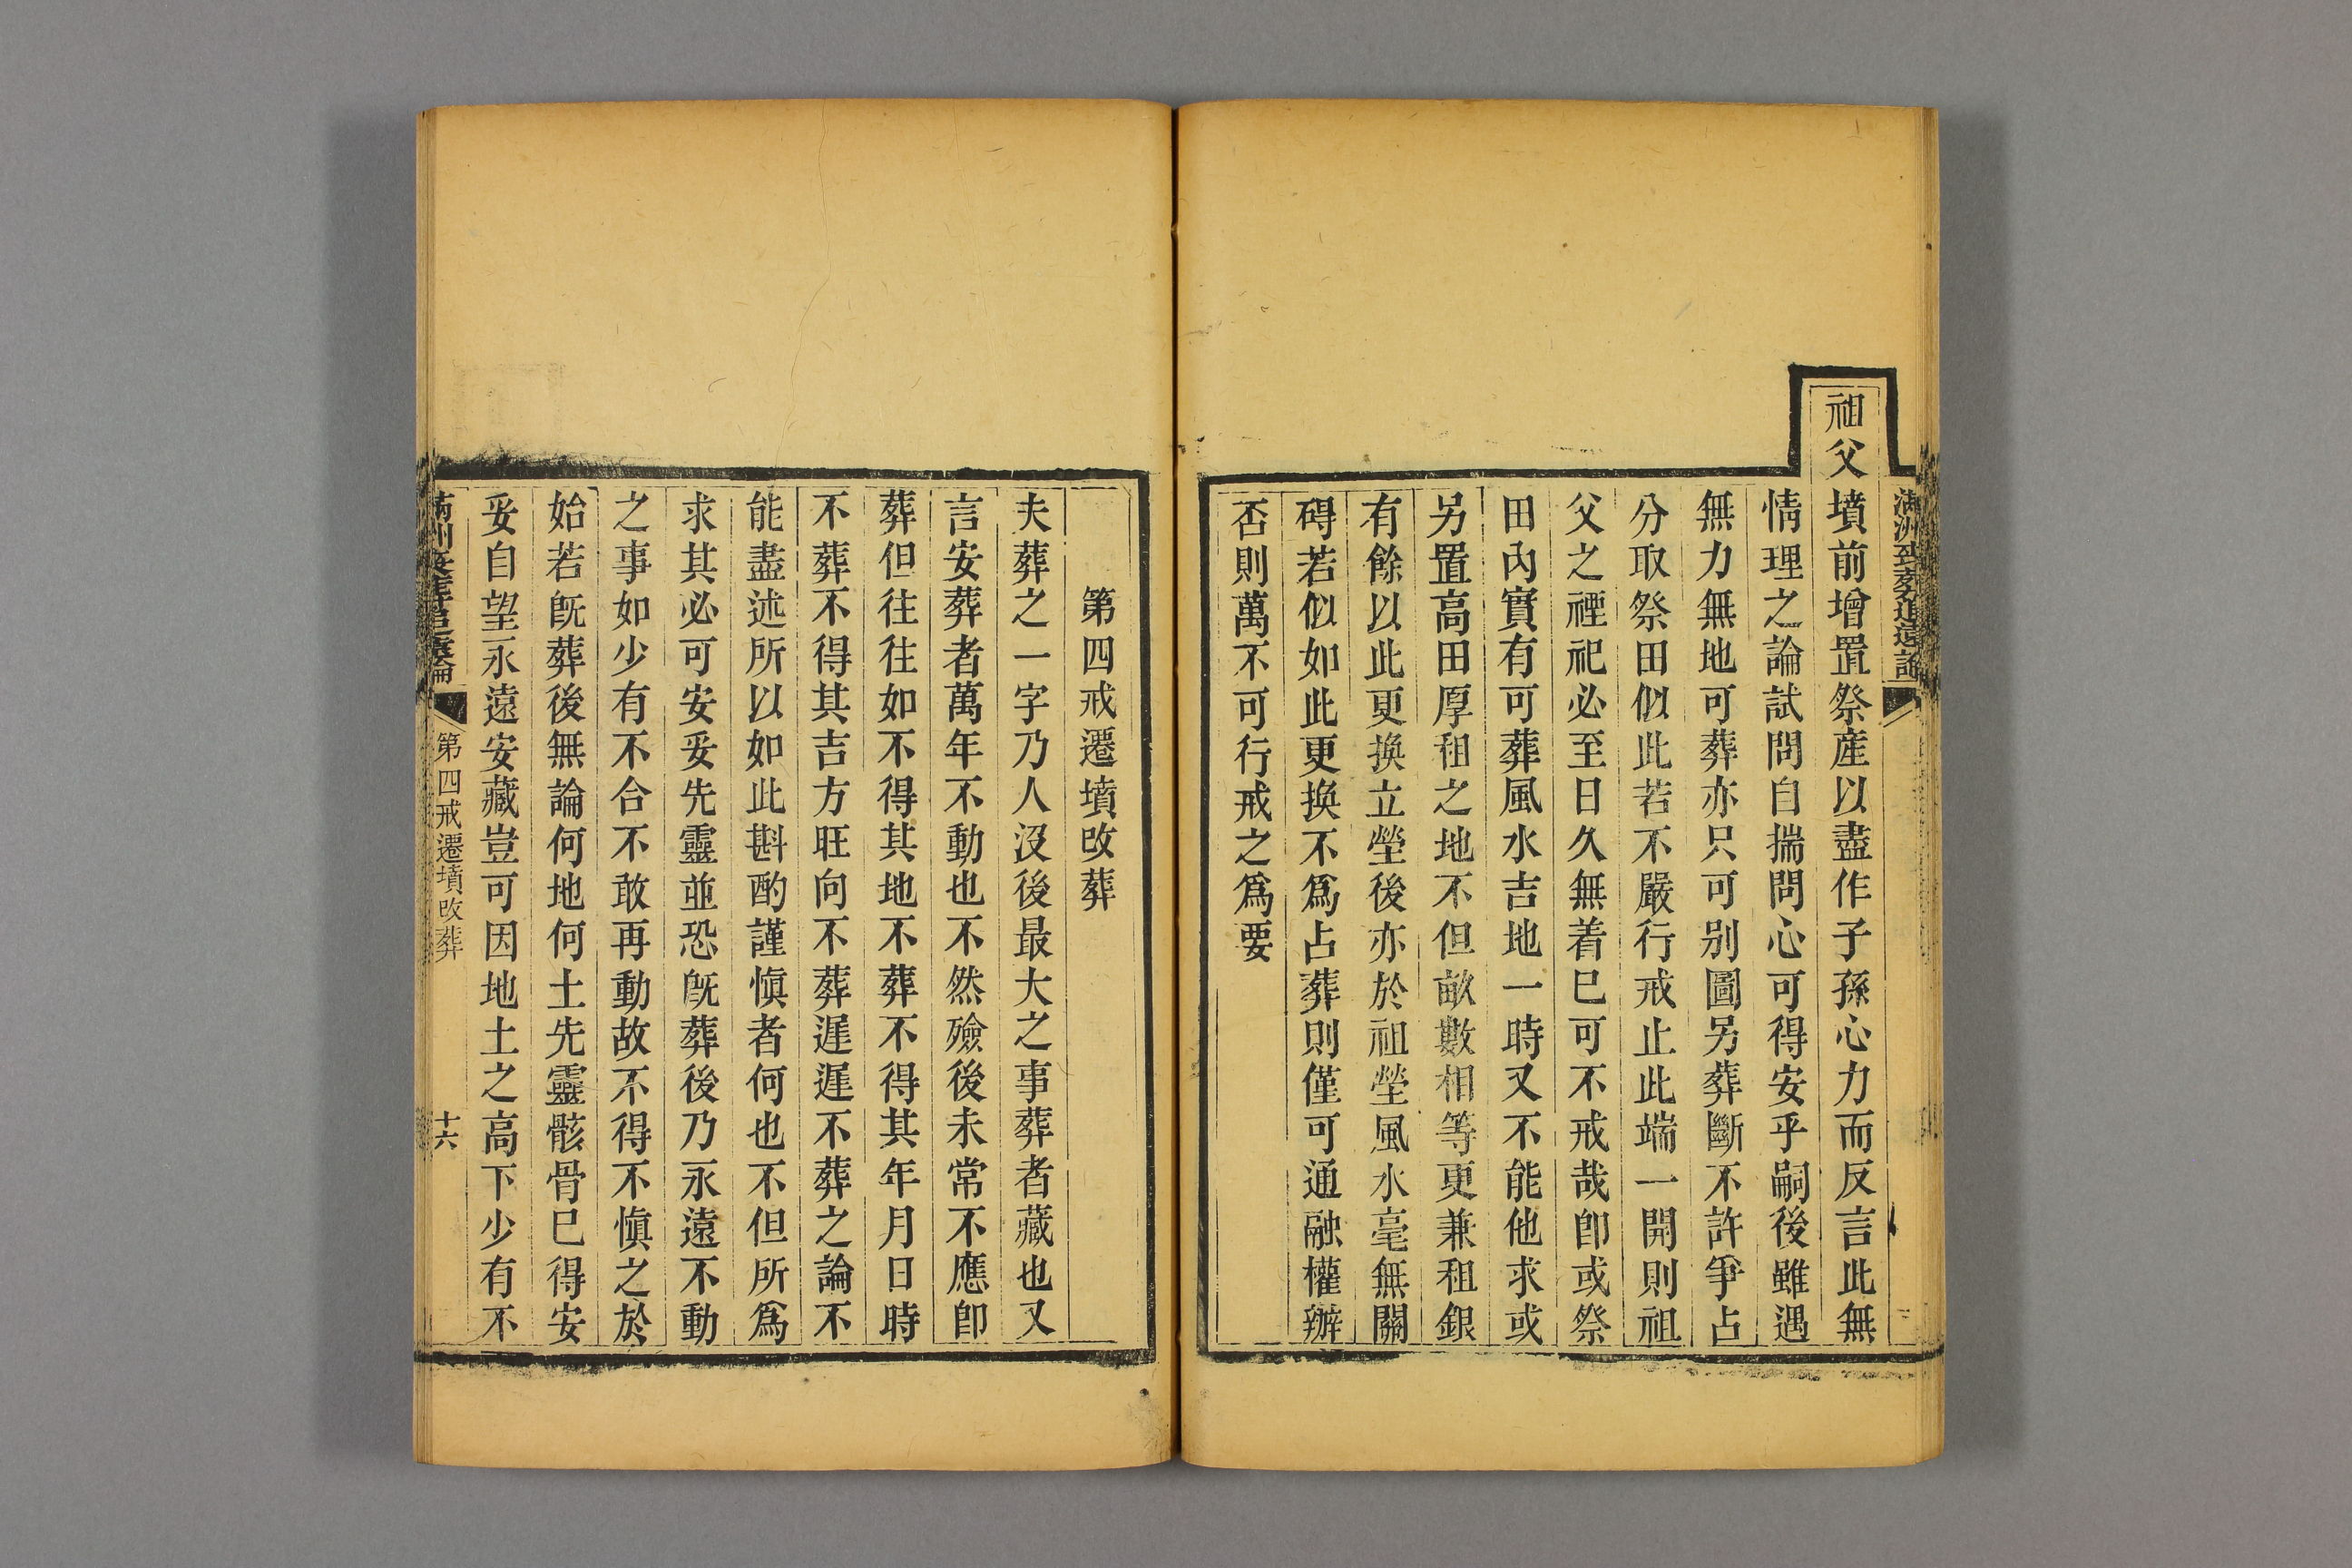 祖父墳前增置祭產以盡作子孫心力而反言此無
情理之論試問自揣問心可得安乎嗣後雖遇
無力無地可葬亦只可别圖另葬斷不許爭占
分取祭田似此若不嚴行戒止此端一開則祖
父之禋祀必至日久無着巳可不戒哉卽或祭
田內實有可葬風水吉地一時又不能他求或
另置高田厚租之地不但畝數相等更兼租銀
有餘以此更換立塋後亦於祖塋風水毫無關
碍若似如此更換不爲占葬則僅可通融權辦
否則萬不可行戒之爲要
第四戒遷墳改葬
夫葬之一字乃人沒後最大之事葬者藏也又
言安葬者萬年不動也不然殮後未常不應卽
葬但往往如不得其地不葬不得其年月日時
不葬不得其吉方旺向不葬遲遲不葬之論不
能盡述所以如此斟酌謹慎者何也不但所爲
求其必可安妥先靈並恐旣葬後乃永遠不動
之事如少有不合不敢再動故不得不慎之於
始若旣葬後無論何地何土先靈骸骨巳得安
妥自望永遠安藏豈可因地土之高下少有不
第四戒遷墳改葬
十六